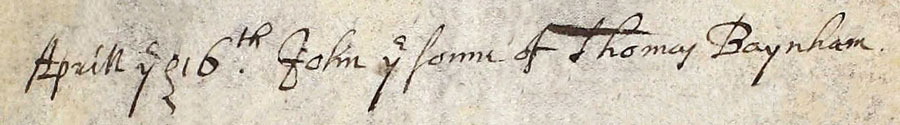 Aprill yᵉ 16th. John yᵉ sonne of Thomas Baynham.